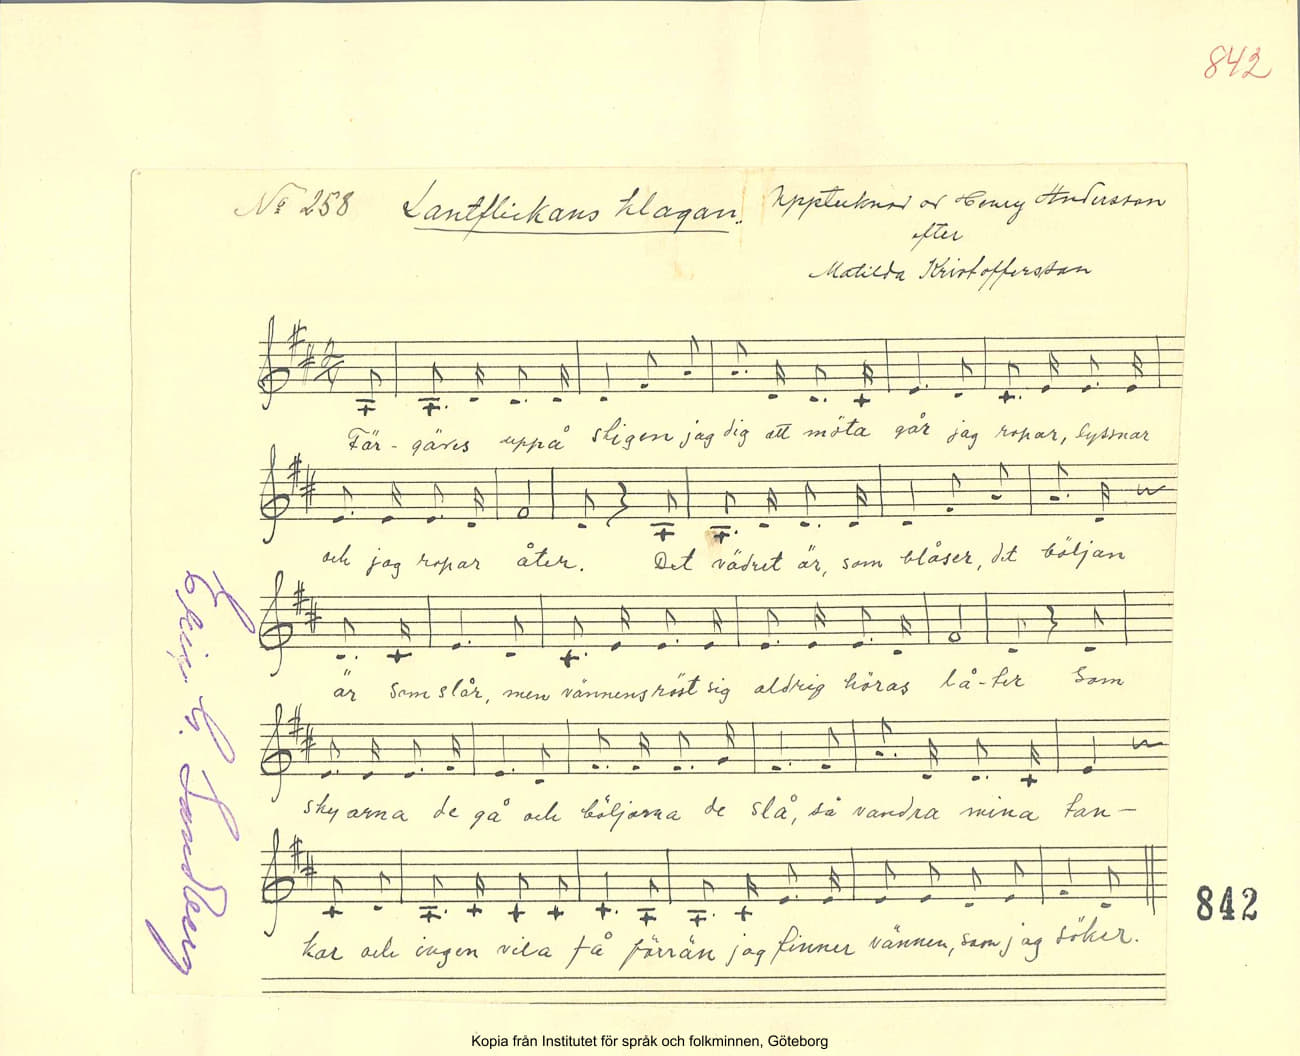 842
No 258 Lantflickans klagan. Upptecknad av Henry Andersson
efter
Matilda Kristoffersson
2/4
Får-gäves uppå stigen jag dig att möta går jag ropar, lyssnar
och jag ropar åter. Det vädret är, som blåser, det böljan
är som slår, men vännens röst sig aldrig höras lå-ter Som
skyarna de gå och böljorna de slå, så vandra mina tan-
kar och ingen vila få förrän jag finner vännen, som jag söker.
842
Kopia från Institutet för språk och folkminnen, Göteborg